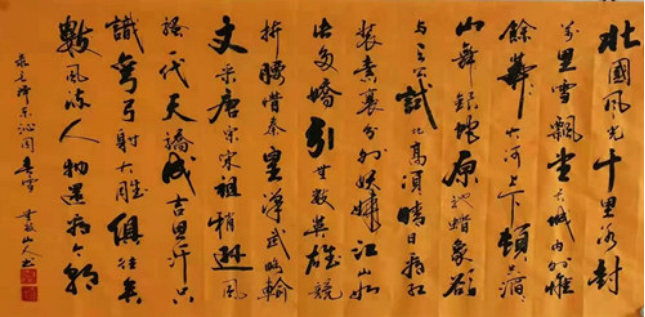 北國風光千里冰封
萬里雪飄望長城内外惟
餘莽〻大河上下頓失滔〻
山舞銀蛇原馳蠟象欲
与天公試比高須晴日看紅
裝素裹分外妖嬈江山如
此多嬌引無數英雄競
折腰惜秦皇漢武略輸
文采唐宗宋祖稍遜風
騷一代天驕成吉思汗只
識彎弓射大雕俱往矣
數風流人物還看今朝
录毛澤东沁园春雪 山人书